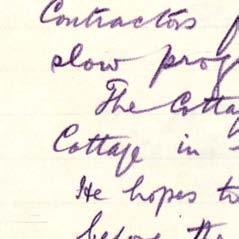 Contractors
slow prog
The Cottag
Cottage in
He hopes to
before the